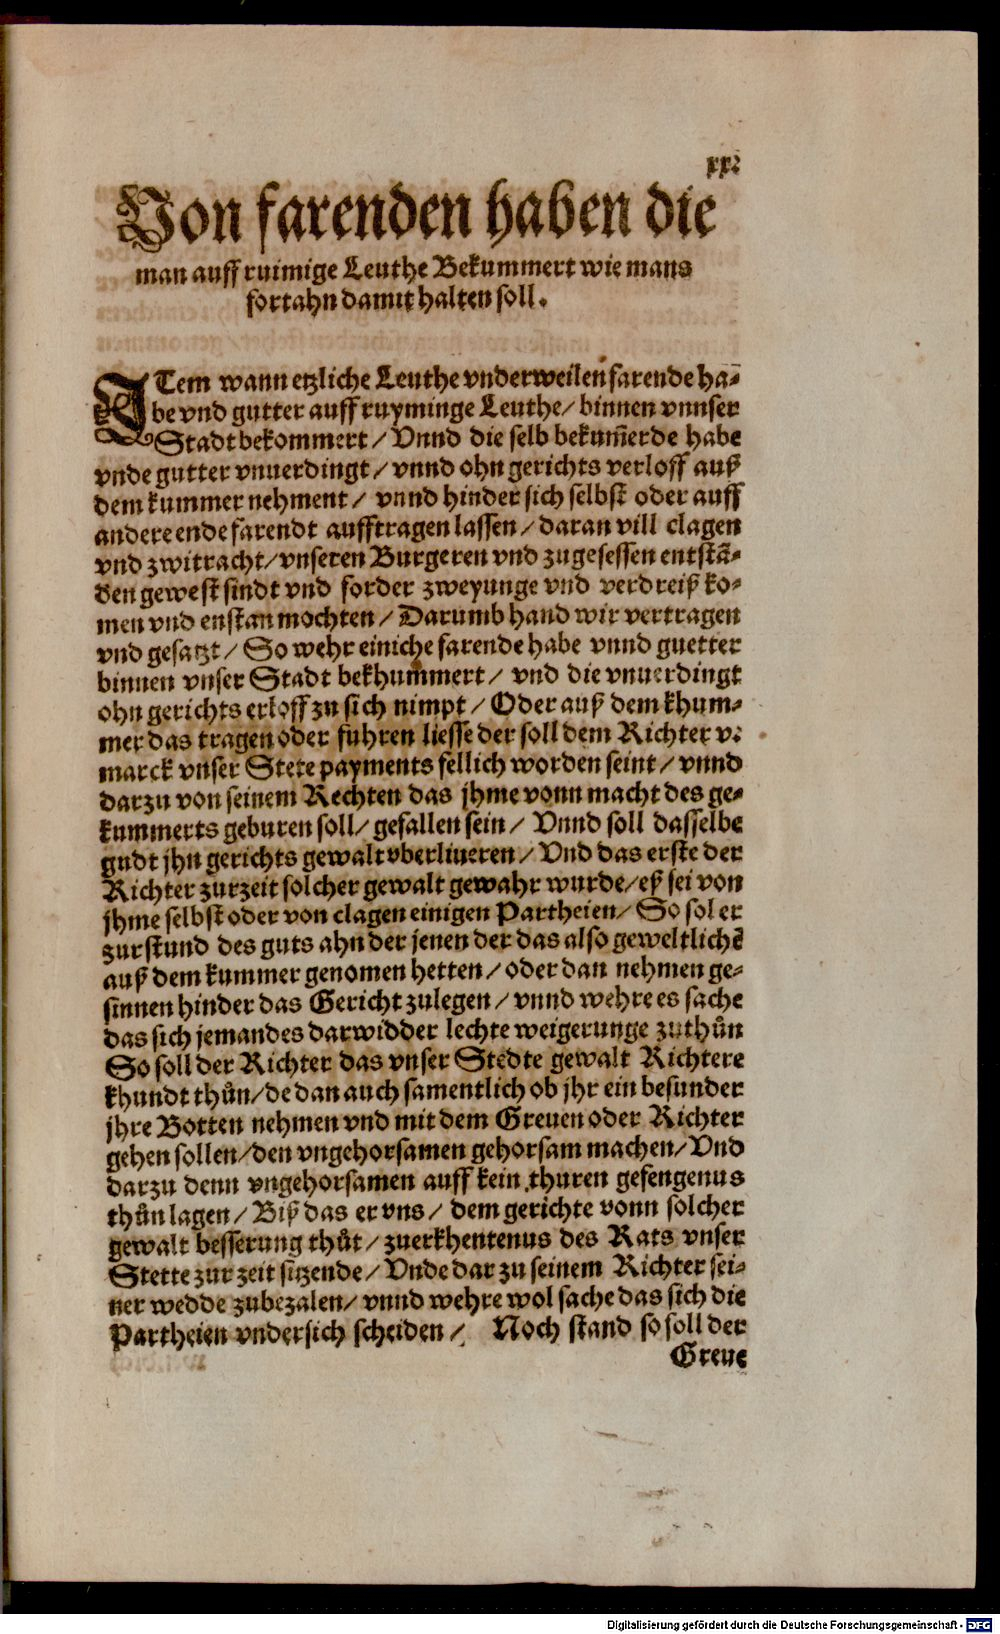 xxi
Von farenden haben die
man auff ruimige Leuthe Bekummert wie mans
fortahn damit halten soll.
ITem wann etzliche Leuthe vnderweilen farende ha⸗
be vnd gutter auff ruyminge Leuthe/ binnen vnnser
Stadt bekommert/ Vnnd die selb bekum̃erde habe
vnde gutter vnuerdingt/ vnnd ohn gerichts verloff auß
dem kummer nehment/ vnnd hinder sich selbst oder auff
andere ende farendt aufftragen lassen/ daran vill clagen
vnd zwitracht/ vnseren Burgeren vnd zugesessen entstā⸗
den gewest sindt vnd forder zweyunge vnd verdreiß ko⸗
men vnd enstan mochten/ Darumb hand wir vertragen
vnd gesatzt/ So wehr einiche farende habe vnnd guetter
binnen vnser Stadt bekhummert/ vnd die vnuerdingt
ohn gerichts erloff zu sich nimpt/ Oder auß dem khum⸗
mer das tragen oder fuhren liesse der soll dem Richter v.
marck vnser Stete payments fellich worden seint/ vnnd
darzu von seinem Rechten das jhme vonn macht des ge⸗
kummerts geburen soll/ gefallen sein/ Vnnd soll dasselbe
gudt jhn gerichts gewalt vberliueren/ Vnd das erste der
Richter zurzeit solcher gewalt gewahr wurde/ eß sei von
jhme selbst oder von clagen einigen Partheien/ So sol er
zurstund des guts ahn der jenen der das also geweltlichē
auß dem kummer genomen hetten/ oder dan nehmen ge⸗
sinnen hinder das Gericht zulegen/ vnnd wehre es sache
das sich jemandes darwidder lechte weigerunge zuthůn
So soll der Richter das vnser Stedte gewalt Richtere
khundt thůn/ de dan auch samentlich ob jhr ein besunder
jhre Botten nehmen vnd mit dem Greuen oder Richter
gehen sollen/ den vngehorsamen gehorsam machen/ Vnd
darzu denn vngehorsamen auff kein thuren gefengenus
thůn lagen/ Biß das er vns/ dem gerichte vonn solcher
gewalt besserung thůt/ zuerkhentenus des Rats vnser
Stette zur zeit sitzende/ Vnde dar zu seinem Richter sei⸗
ner wedde zubezalen/ vnnd wehre wol sache das sich die
Partheien vndersich scheiden/ Noch stand so soll der
Greue
Digitalisierung gefördert durch die Deutsche Forschungsgemeinschaft - DFG